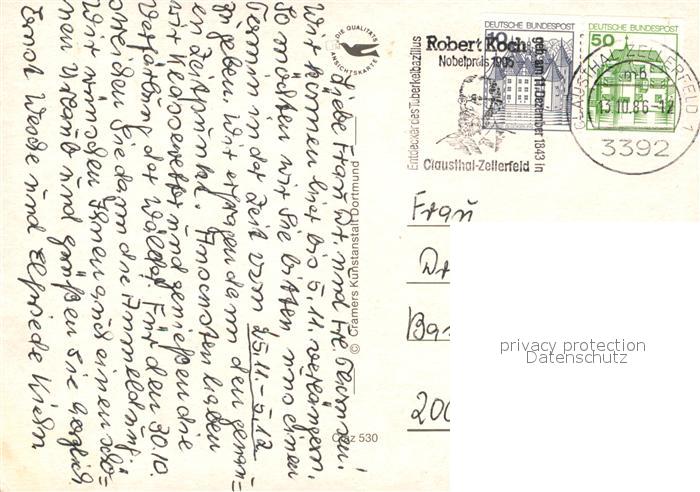 Liebe Frau Dr. und Fr. 
Wir können hier bis 5.11. verlängern.
So möchten wir Sie bitten uns einen
Termin in der Zeit vom 25.11.-5.12
zu geben. Wir ertragen dann den genau=
en Zeitpunkt. Ansonsten haben
wir Klassewetter und genießen die
Verfärbung der Wälder. Für den 30.10.
streichen Sie dann die Anmeldung!
Wir wünschen Ihnen auch einen schö=
nen Urlaub und grüßen Sie herzlich
Ernst Wede und Elfriede Kiehn
DIE QUALITÄTS
ANSICHTSKARTE
© Cramers Kunstanstalt Dortmund
Craz 530
DEUTSCHE BUNDESPOST
10
DEUTSCHE BUNDESPOST
50
Robert Koch
Nobelpreis 1905
Entdecker des Tuberkelbazillus
geb. am 11. Dezember 1843 in
Clausthal-Zellerfeld
CLAUSTHAL-ZELLERFELD 1
mb
13.10.86-12
3392
Frau
Dr
Bar
200
privacy protection
Datenschutz